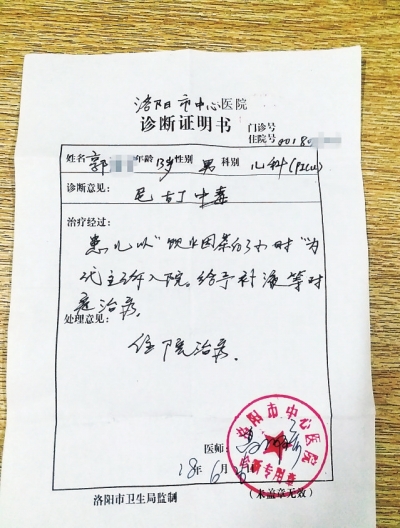 洛阳市中心医院
诊断证明书
门诊号
住院号 00180
姓名 郭 年龄 13岁 性别 男 科别 儿科(PICU)
诊断意见：
尼古丁中毒
治疗经过：
患儿以"饮 时"为
代主诉入院。给予补液等对
症治疗。
处理意见：
住院治疗。
医师：
18年6
洛阳市中心医院
诊断专用章
洛阳市卫生局监制
(未盖章无效)